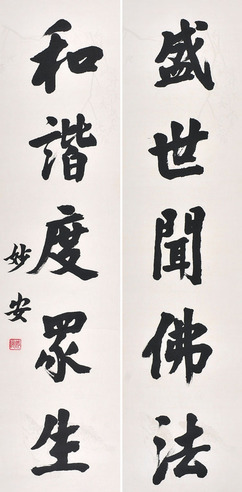 盛世聞佛法
和諧度眾生
妙安